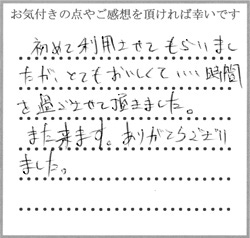 お気付きの点やご感想を頂ければ幸いです
初めて利用させてもらいまし
たが、とてもおいしくていい時間
を過ごさせて頂きました。
また来ます。ありがとうござい
ました。